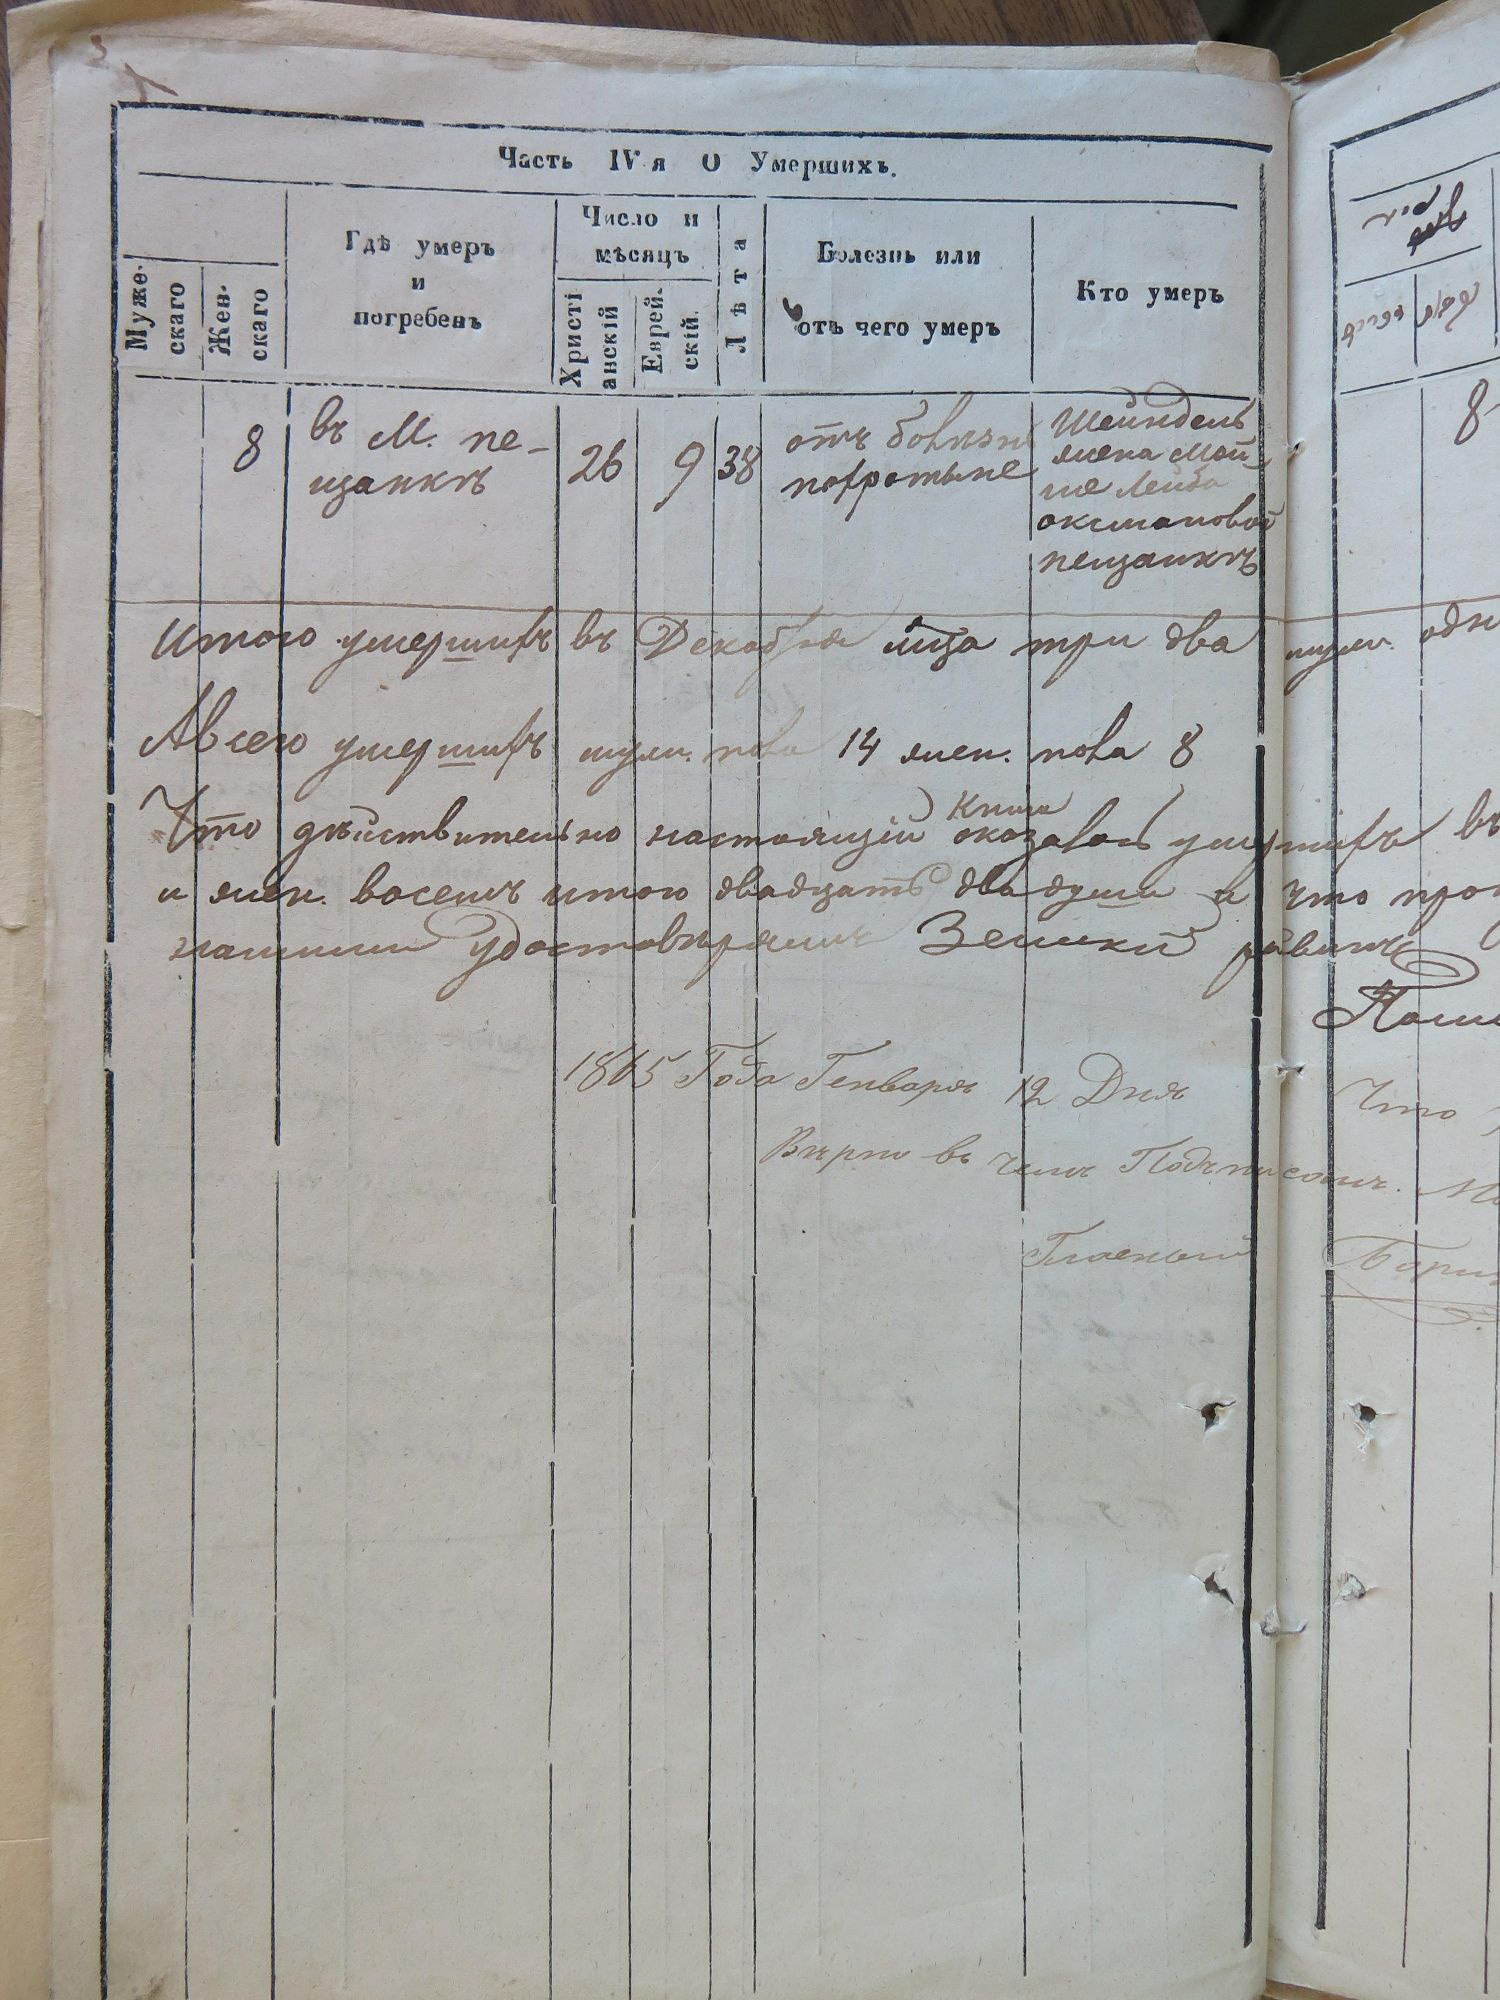 Часть IV я О Умершихъ.
Муже-
скаго
Жен-
скаго
Гдѣ умеръ
и
погребенъ
Число и
мѣсяцъ
Христі
анскій
Еврей-
скій.
Лѣта
Болезнь или
отъ чего умеръ
Кто умеръ
8
въ М. пе-
щанкѣ
26
9
38
отъ
Шейндель
жена Мой-
ше Лейба
оксмановой
пещанкѣ
8
Итого умершихъ въ Декабря мца три два муж. одн
А всего умершихъ муж. пола 14 жен. пола 8
Книга
Что дѣйствительно настоящій оказалось умершихъ въ
и жен. восемъ итого двадцать два душа и что про
нашими удостовѣряемъ
1865 Года Генваря 12 Дня
Что
Вѣрно въ чемъ Подъписомъ.
Гласный